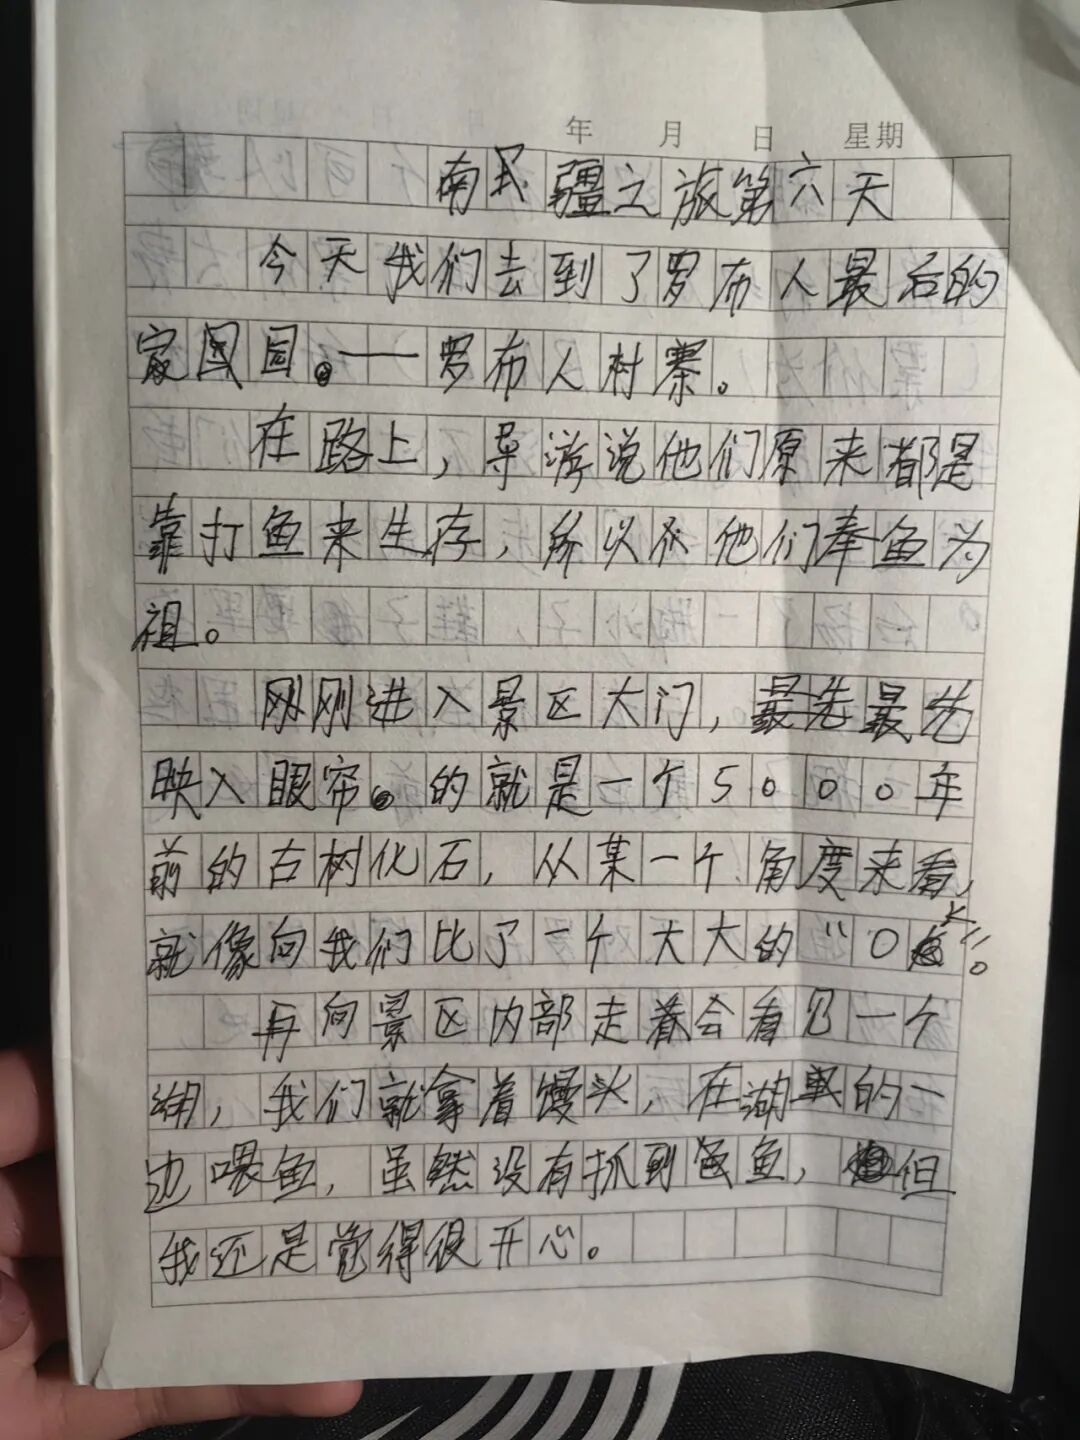 年 月 日 星期
南疆之旅第六天
今天我们去到了罗布人最后的
家园——罗布人村寨。
在路上，导游说他们原来都是
靠打鱼来生存，所以他们奉鱼为
祖。
刚刚进入景区大门，最先
映入眼帘的就是一个5000年
前的古树化石，从某一个角度来看，
就像向我们比了一个大大的“OK”。
再向景区内部走着会看见一个
湖，我们就拿着馒头，在湖的一
边喂鱼，虽然没有抓到鱼，但
我还是觉得很开心。